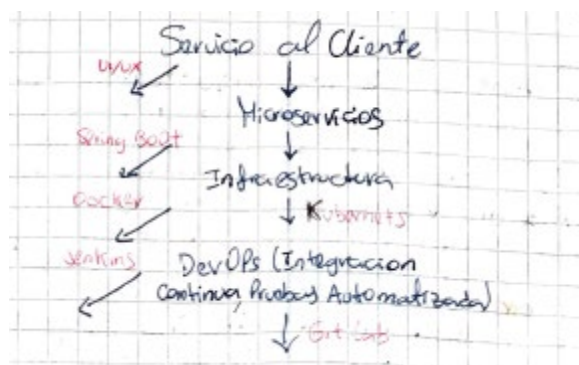 Servicio al Cliente
UI/UX
Microservicios
Spring Boot
Infraestructura
Docker
Kubernets
Jenkins
DevOPs (Integracion
Continua, Pruebas Automatizadas)
Git Lab